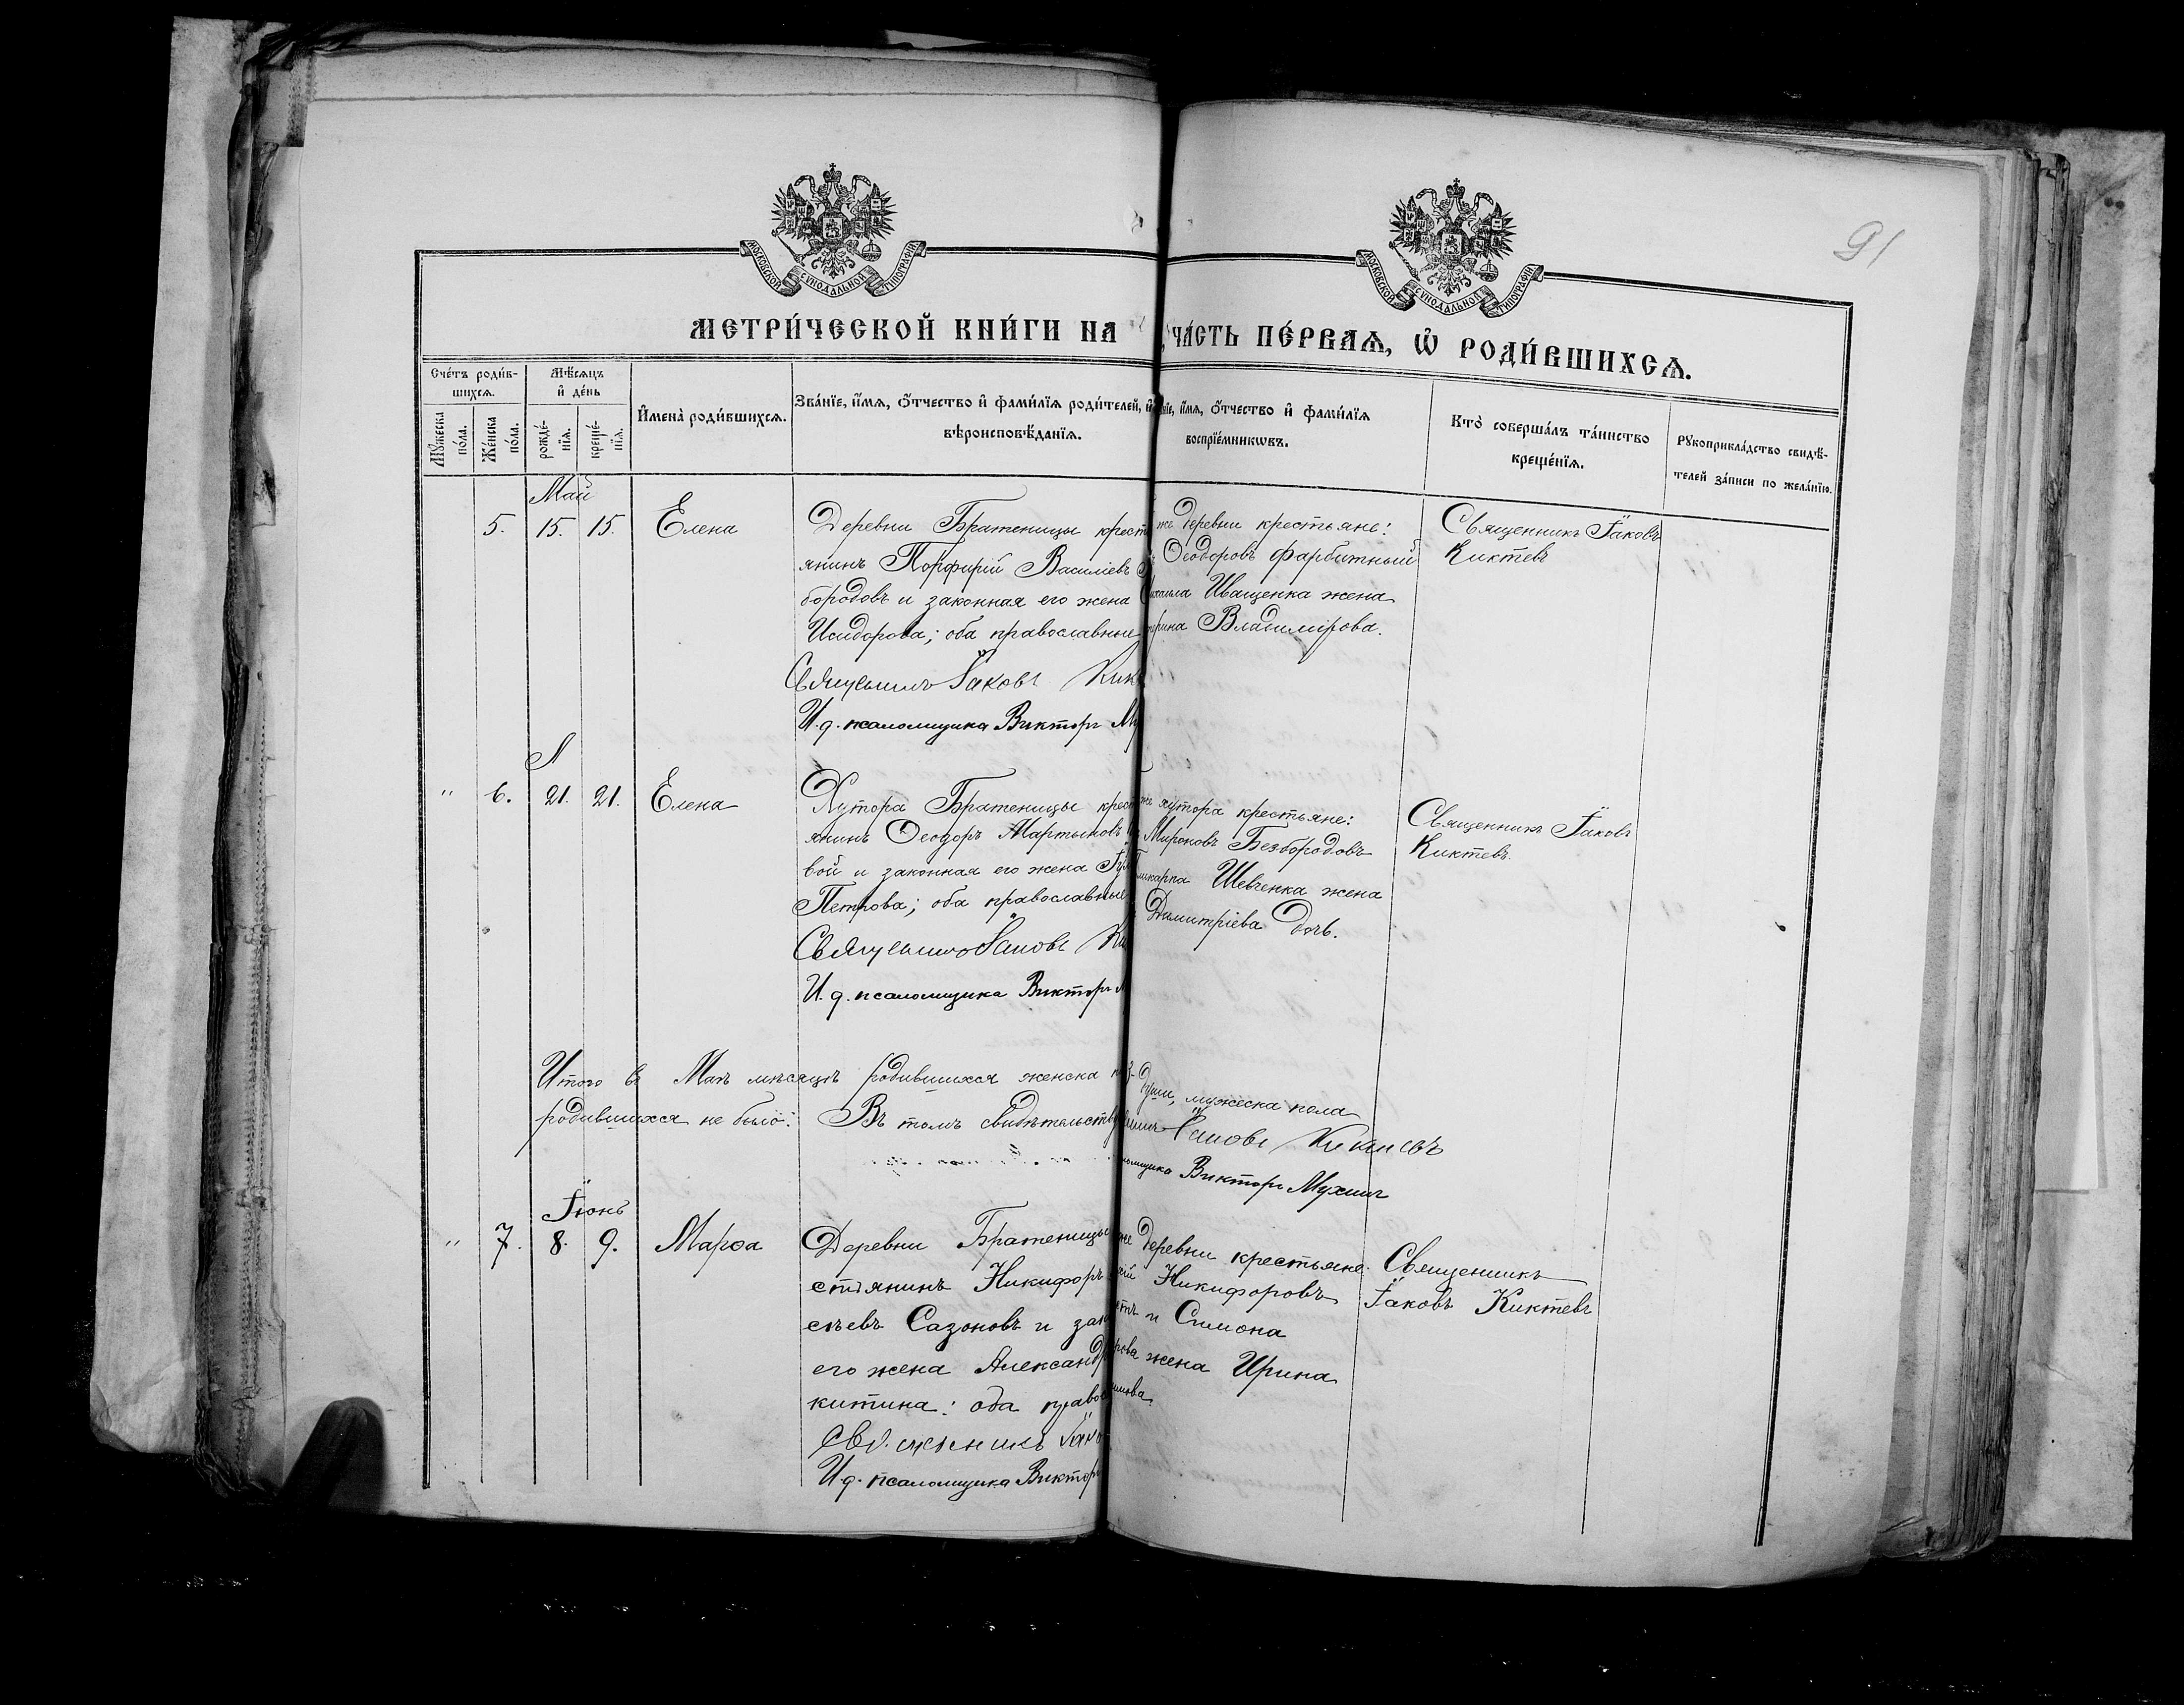 91
МОСКОВСКОЙ СѴНОДАЛЬНОЙ ТИПОГРАФІИ
МОСКОВСКОЙ СѴНОДАЛЬНОЙ ТИПОГРАФІИ
МЕТРИ́ЧЕСКОЙ КНИ́ГИ НА
ЧА́СТЬ ПЕ́РВАѦ, Ѿ РОДИ́ВШИХСѦ.
Сче́тъ роди́в-
шихсѧ.
Мꙋ́жеска
по́ла.
Же́нска
по́ла.
Мѣ́сѧцъ
и҆ де́нь
рожде́-
нїѧ.
креще́-
нїѧ.
И҆мена̀ роди́вшихсѧ.
Зва́нїе, и҆́мѧ, ѻ҆́тчество и҆ фами́лїѧ роди́телей, и҆
вѣроисповѣ́данїѧ.
нїе, и҆́мѧ, ѻ҆́тчество и҆ фами́лїѧ
воспрїе́мникѡвъ.
Кто̀ соверша́лъ та́инство
креще́нїѧ.
Рꙋкоприкла́дство свидѣ́-
телей за́писи по жела́нїю.
Май
5. 15. 15. Елена
Деревни Братеницы крест
янинъ Порфирій Василіевъ
бородовъ и законная его жена
Исидорова; оба православные
Священникъ Іаковъ Кик
И. д. псаломщика Викторъ Му
же деревни крестьяне:
Ѳеодоровъ Фарбитный
хаила Иващенка жена
рина Владимірова.
Священникъ Іаковъ
Киктевъ
" 6. 21. 21. Елена
Хутора Братеницы крест
янинъ Ѳеодоръ Мартыновъ
вой и законная его жена
Петрова; оба православные
Священникъ Іаковъ Ки
И. д. псаломщика Викторъ М
же хутора крестьяне:
Мироновъ Безбородовъ
ликарпа Шевченка жена
Димитріева дочь.
Священникъ Іаковъ
Киктевъ.
Итого въ Маѣ мѣсяцѣ родившихся женска
души, мужеска пола
родившихся не было. Въ томъ свидѣтельству
Іаковъ Киктевъ
омщика Викторъ Мухинъ
Іюнь
" 7. 8. 9. Марѳа
Деревни Братеницы
стьянинъ Никифоръ
сѣевъ Сазоновъ и зак
его жена Александр
китина: оба право
Священникъ Іако
И. д. псаломщика Виктор
же деревни крестьяне
Никифоровъ
и Симона
рова жена Ирина
Священникъ
Іаковъ Киктевъ